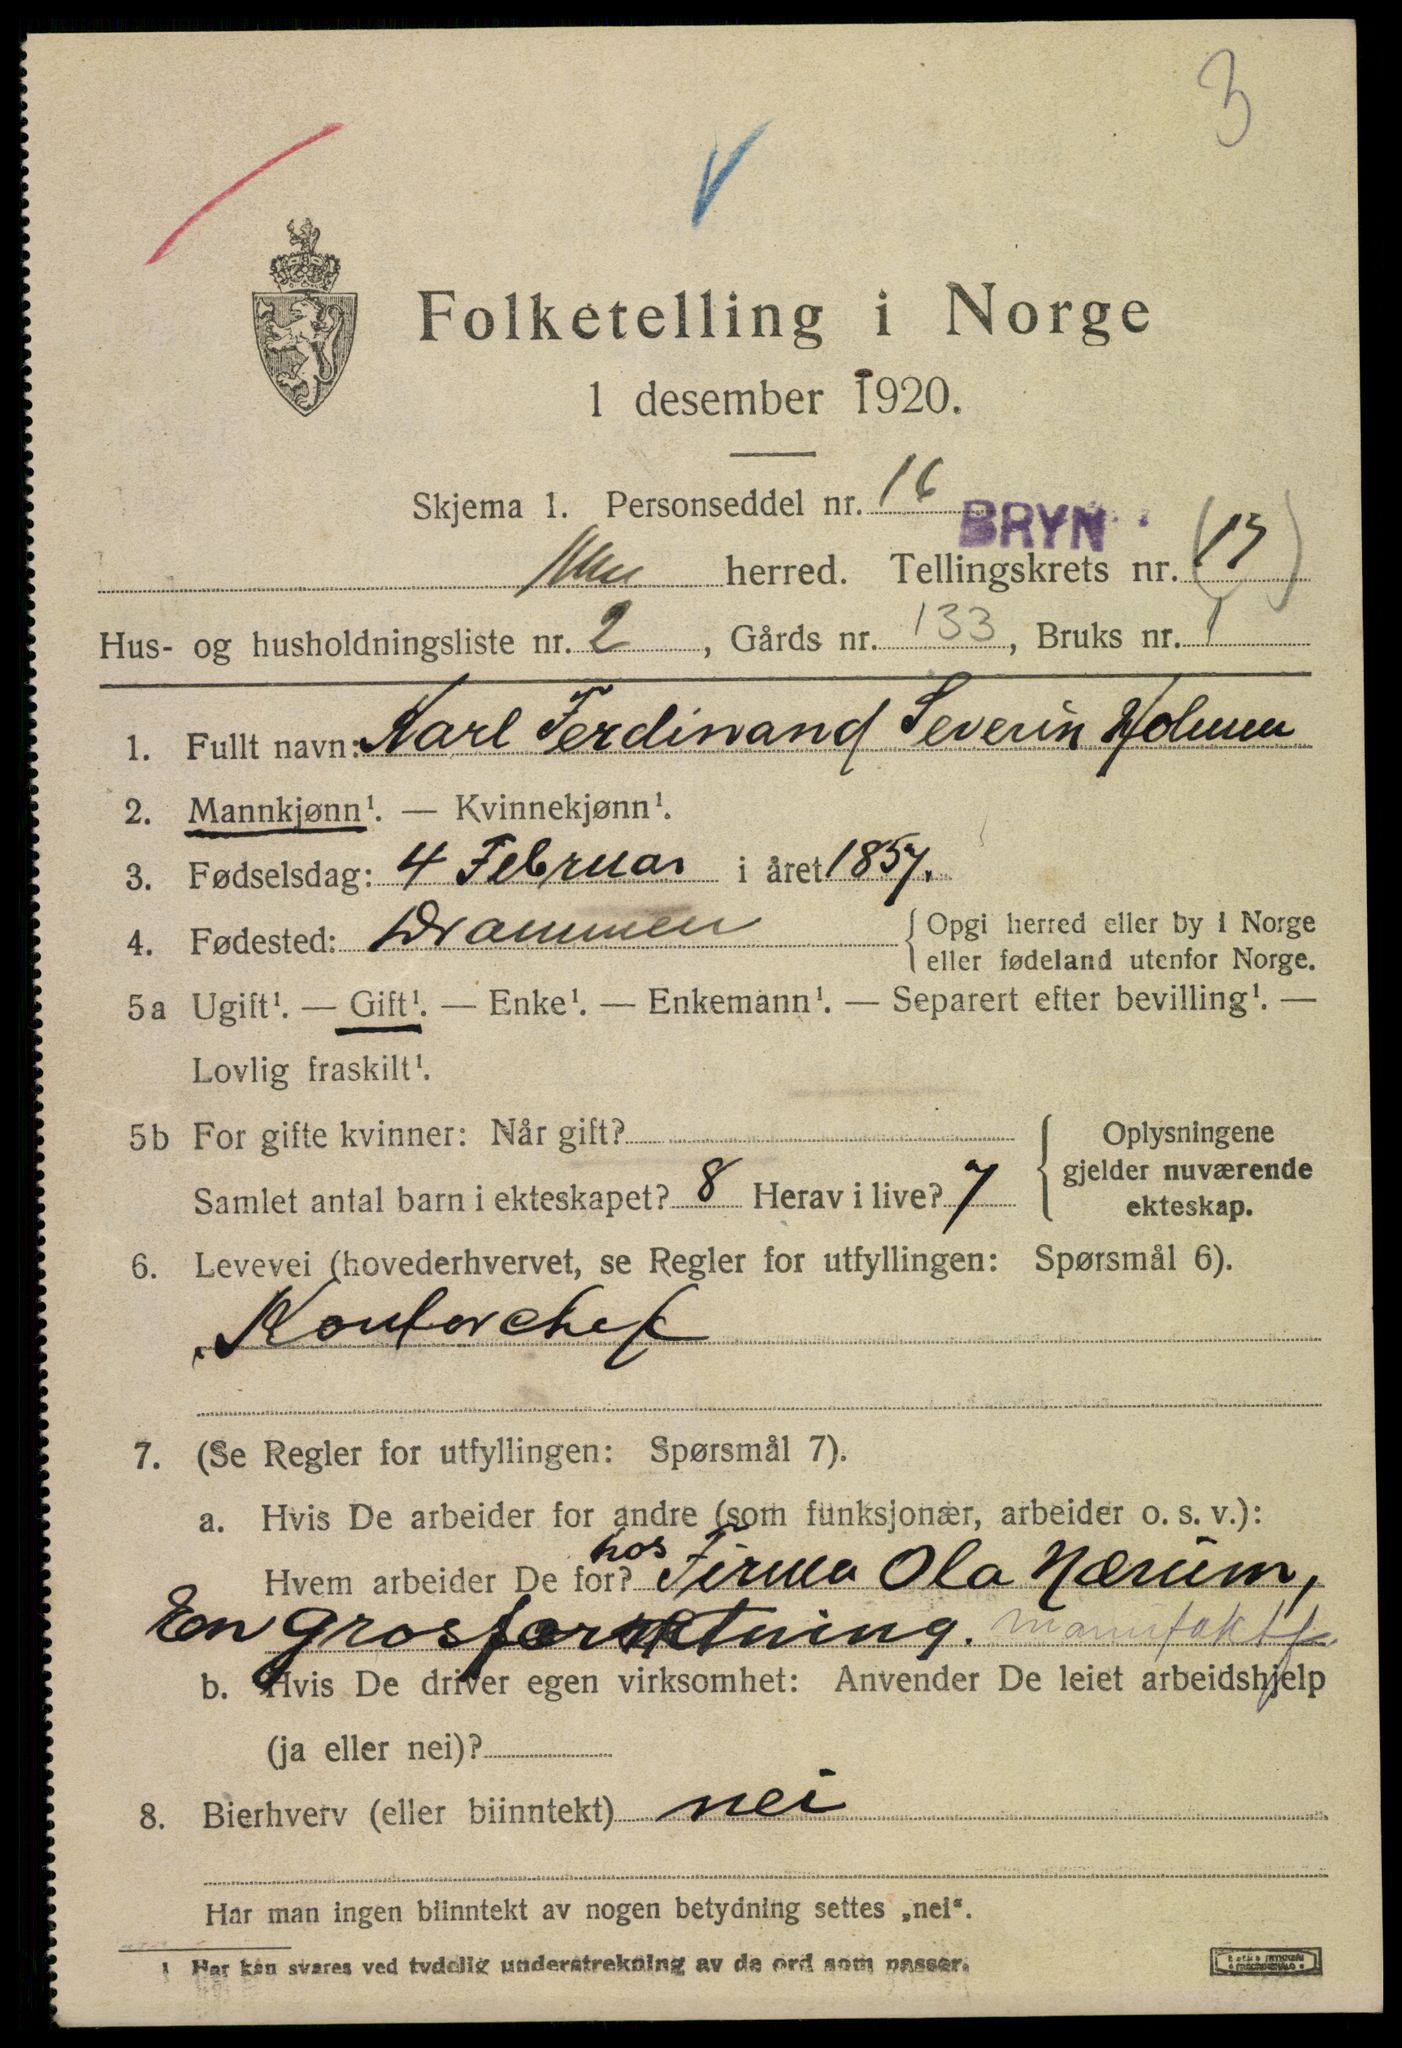 3
Folketelling i Norge
1 desember 1920.
Skjema 1. Personseddel nr. 16
BRYN
Aker herred. Tellingskrets nr. (17)
Hus- og husholdningsliste nr. 2, Gårds nr. 133, Bruks nr. 1
1. Fullt navn: Karl Ferdinand Severin Holmen
2. Mannkjønn¹. — Kvinnekjønn¹.
3. Fødselsdag: 4 Februar i året 1857.
4. Fødested: Drammen { Opgi herred eller by i Norge
eller fødeland utenfor Norge.
5a Ugift¹. — Gift¹. — Enke¹. — Enkemann¹. — Separert efter bevilling¹. —
Lovlig fraskilt¹.
5b For gifte kvinner: Når gift?
Samlet antal barn i ekteskapet? 8 Herav i live? 7
{ Oplysningene
gjelder nuværende
ekteskap.
6. Levevei (hovederhvervet, se Regler for utfyllingen: Spørsmål 6).
Kontorchef
7. (Se Regler for utfyllingen: Spørsmål 7).
a. Hvis De arbeider for andre (som funksjonær, arbeider o. s. v.):
Hvem arbeider De for? hos Firma Ola Nærum,
En grosforretning. manufaktf.
b. Hvis De driver egen virksomhet: Anvender De leiet arbeidshjelp
(ja eller nei)?
8. Bierhverv (eller biinntekt) nei
Har man ingen biinntekt av nogen betydning settes „nei“.
1 Her kan svares ved tydelig understrekning av de ord som passer.